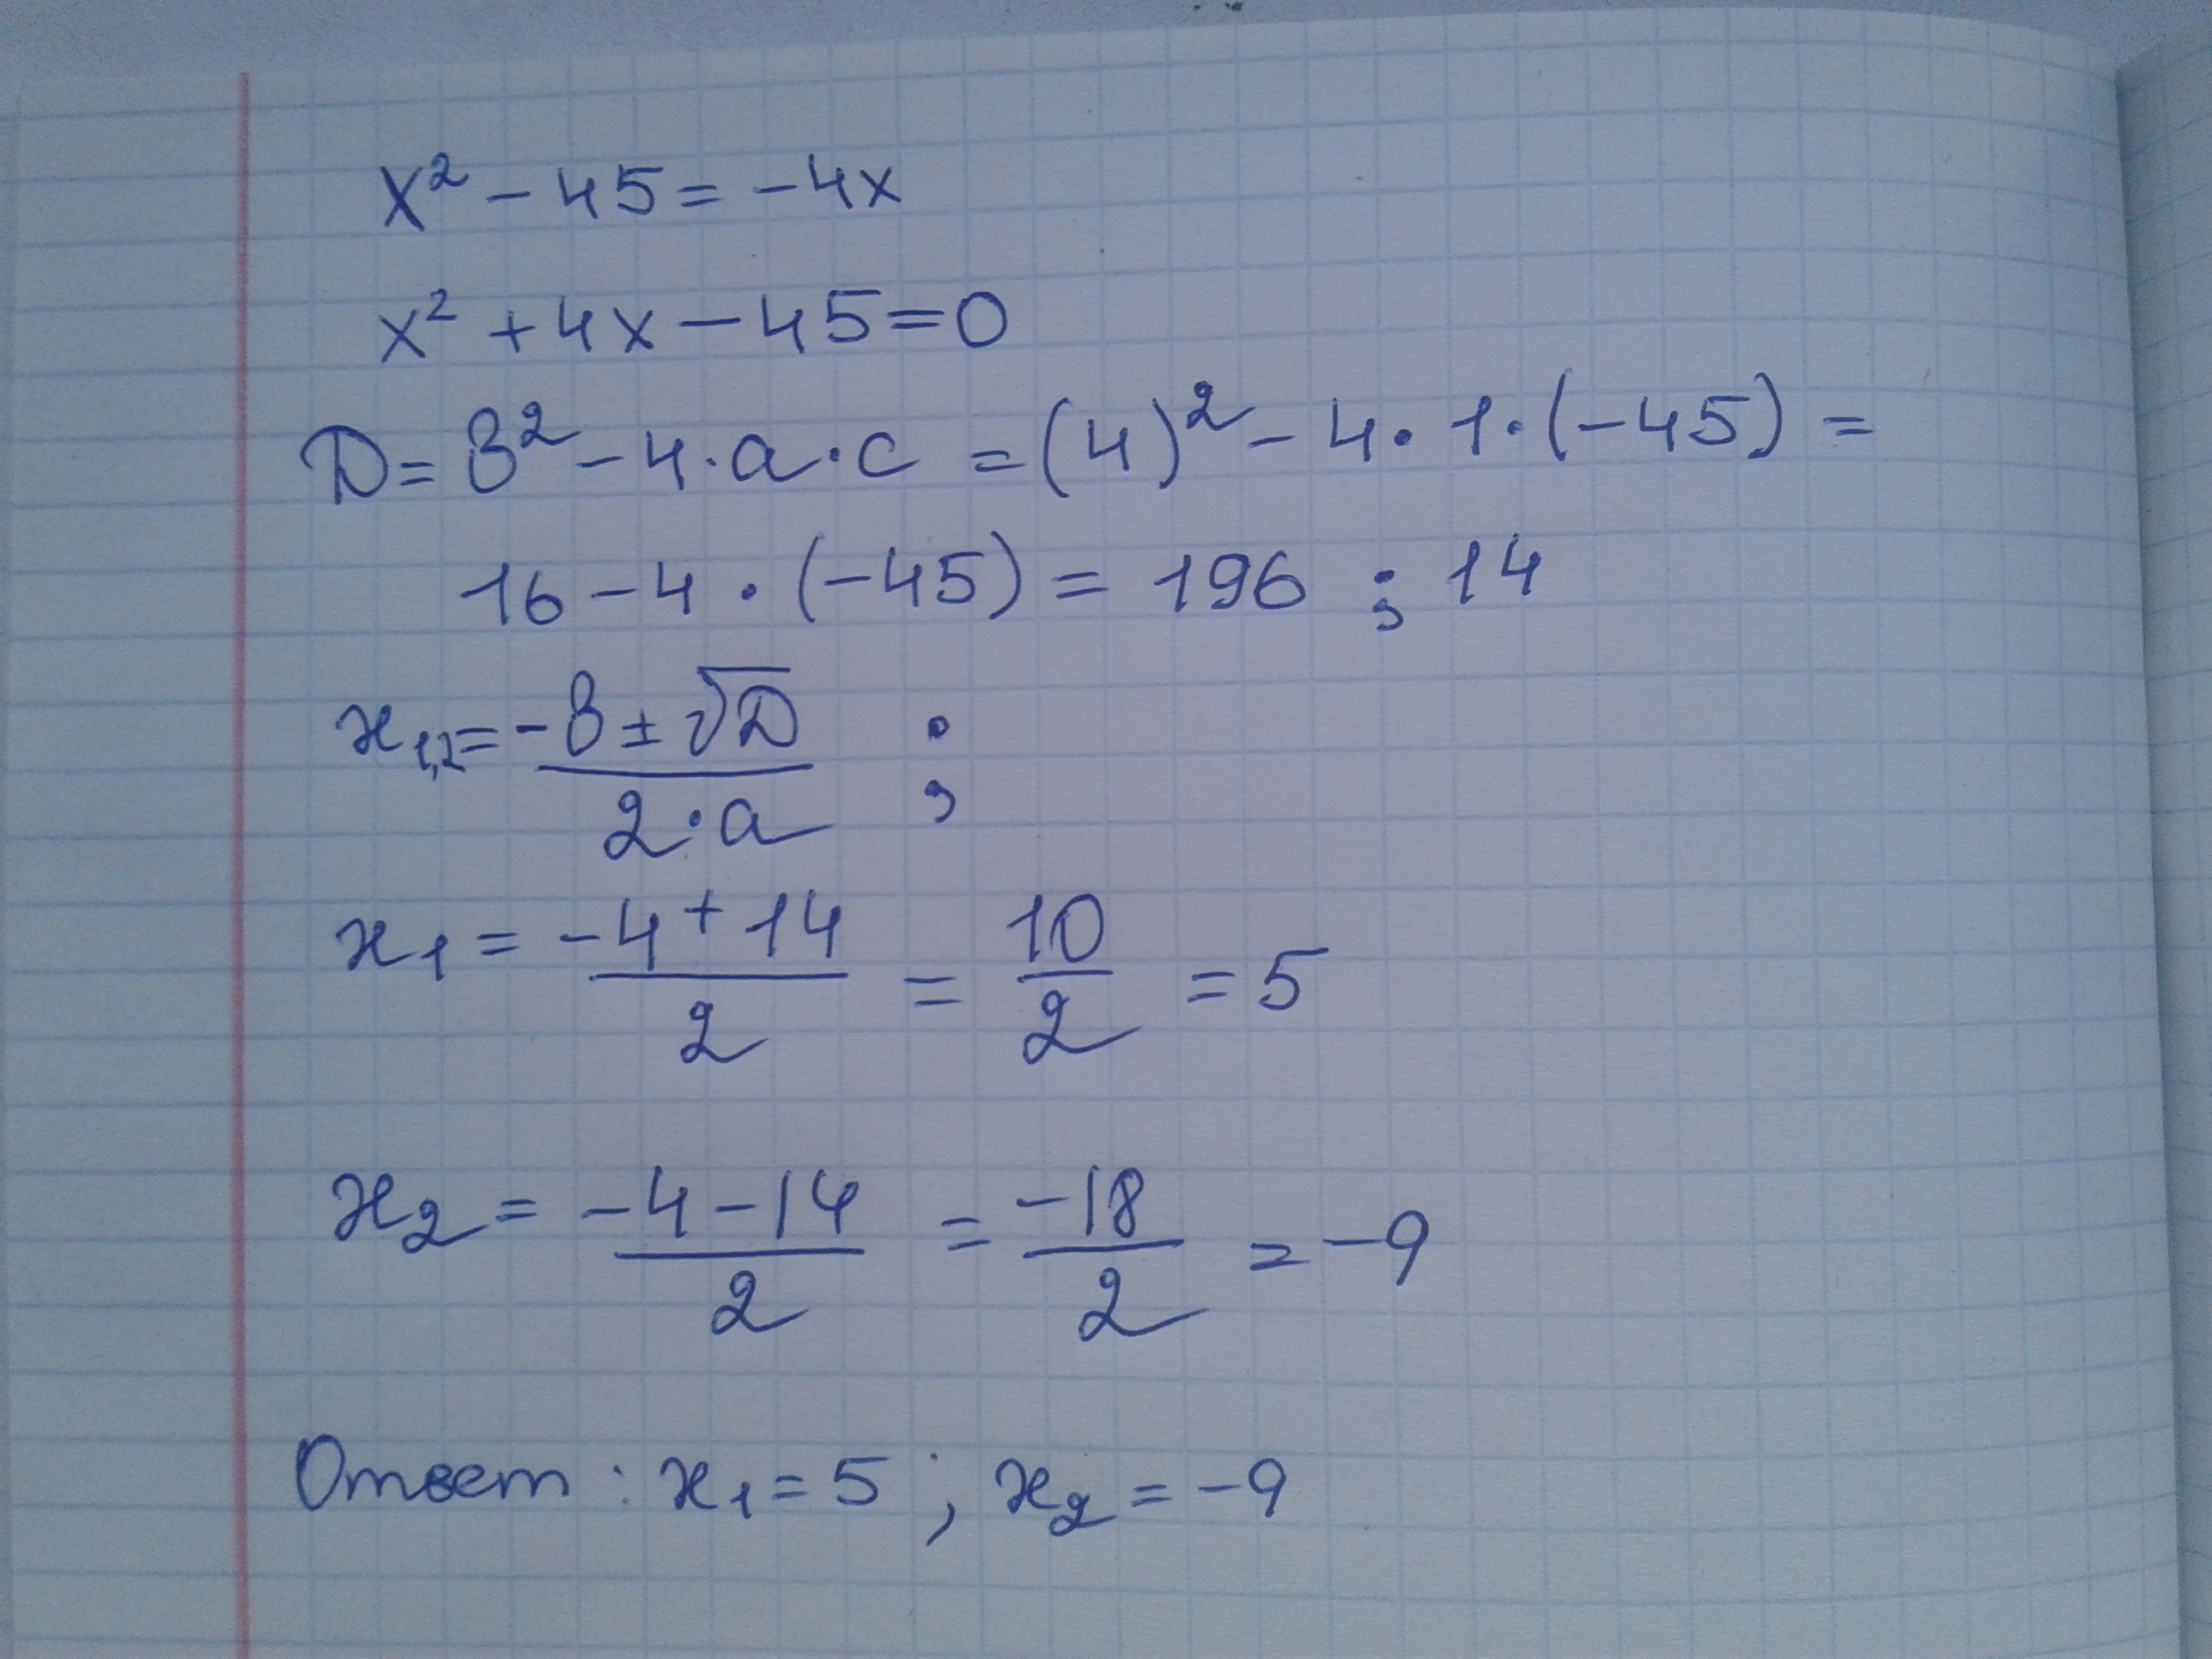 x² - 45 = -4x
x² + 4x - 45 = 0
D = в² - 4·a·c = (4)² - 4·1·(-45) =
16 - 4·(-45) = 196 ; 14
x₁,₂ = -в ± √D / 2·a ;
x₁ = -4 + 14 / 2 = 10 / 2 = 5
x₂ = -4 - 14 / 2 = -18 / 2 = -9
Ответ : x₁ = 5 ; x₂ = -9